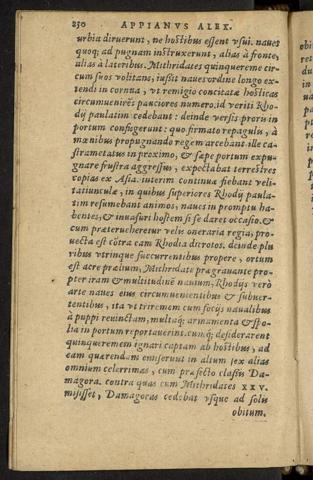 230 APPIANVS ALEX.
urbia diruerunt, ne hostibus essent vsui. naues
quoq; ad pugnam instruxerunt, alias à fronte,
alias à lateribus. Mithridates quinquereme cir-
cum suos volitans, iussit naues ordine longo ex-
tendi in cornua, vt remigio concitatæ hosticas
circumuenirēt pauciores numero. id veriti Rhod-
ij paulatim cedebant: deinde versis proris in
portum confugerunt: quo firmato repagulis, à
mœnibus propugnando regem arcebant. ille ca-
strametatus in proximo, & sæpe portum expu-
gnare frustra aggressus, expectabat terrestres
copias ex Asia. interim continua fiebant veli-
tatiunculæ, in quibus superiores Rhodij paula-
tim resumebant animos, naues in promptu ha-
bentes, & inuasuri hostem si se daret occasio. &
cum præterueheretur velis oneraria regia, pro-
uecta est cōtra eam Rhodia dicrotos. deinde plu-
ribus vtrinque succurrentibus propere, ortum
est acre prælium, Mithridate prægrauante pro-
pter iram & multitudinē nauium, Rhodijs verò
arte naues eius circumuenientibus & subuer-
tentibus, ita vt triremem cum socijs naualibus
à puppi reuinctam, multaq; armamenta & spo-
lia in portum reportauerint. cunq; desiderarent
quinqueremem ignari captam ab hostibus, ad
eam quærendam emiserunt in altum sex alias
omnium celerrimas, cum præfecto classis Da-
magora. contra quas cum Mithridates XXV.
misisset, Damagoras cedebat vsque ad solis
obitum.